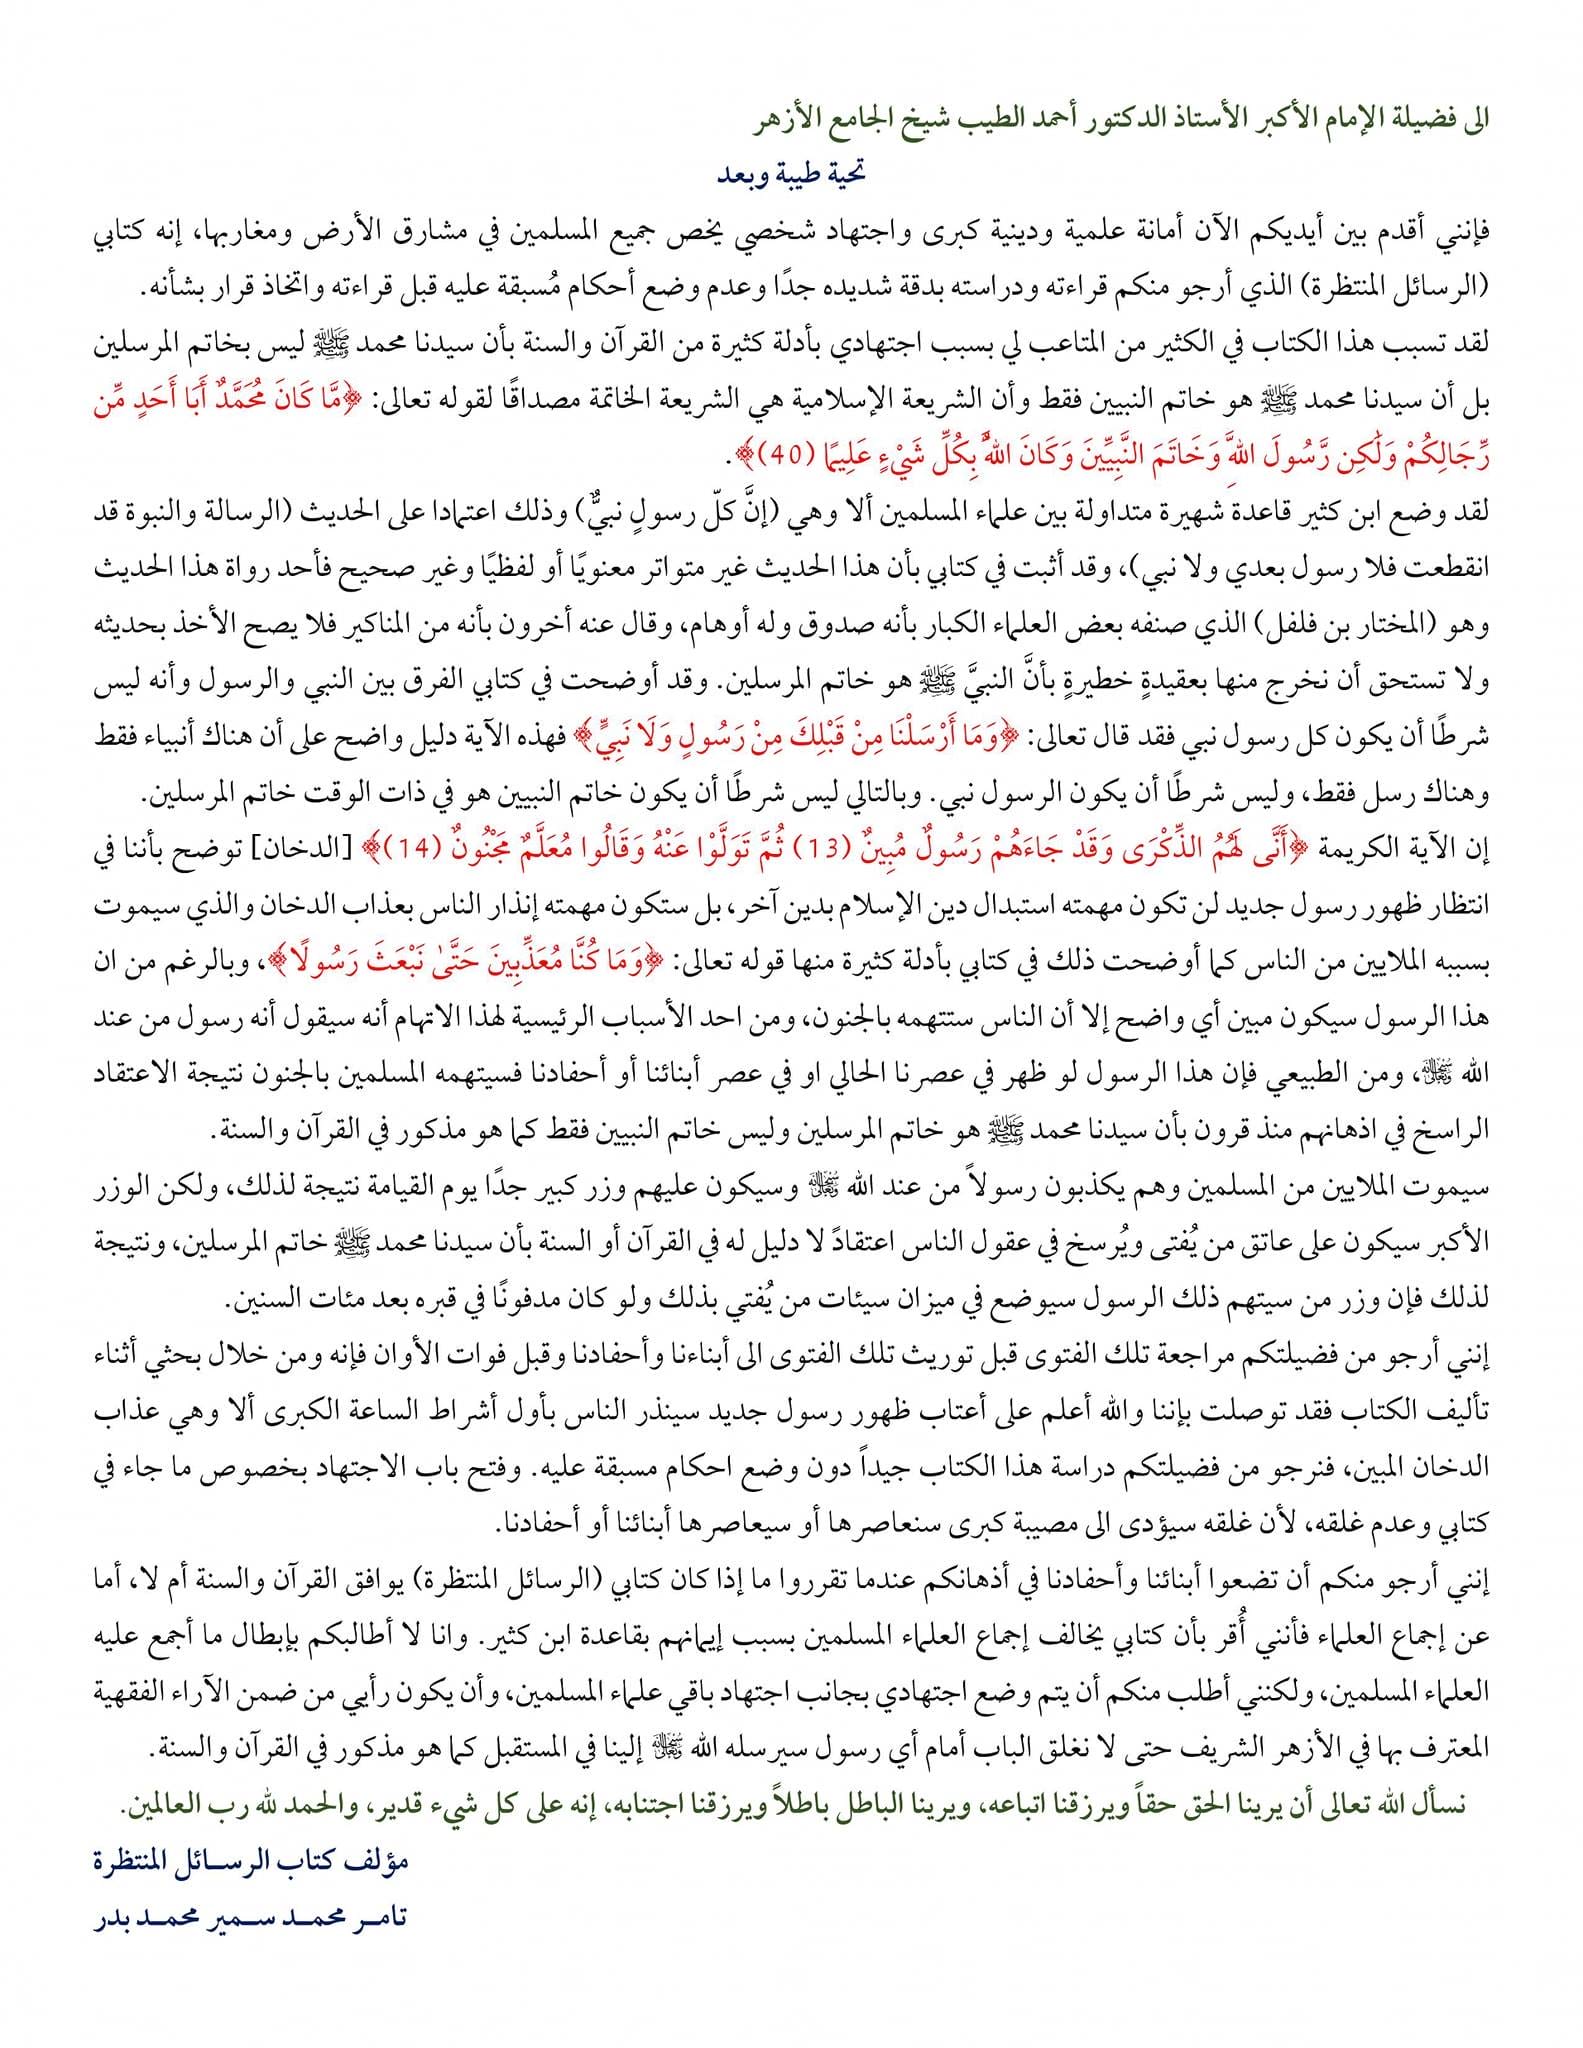 الى فضيلة الإمام الأكبر الأستاذ الدكتور أحمد الطيب شيخ الجامع الأزهر
تحية طيبة وبعد
فإنني أقدم بين أيديكم الآن أمانة علمية ودينية كبرى واجتهاد شخصي يخص جميع المسلمين في مشارق الأرض ومغاربها، إنه كتابي
(الرسائل المنتظرة) الذي أرجو منكم قراءته ودراسته بدقة شديده جدًا وعدم وضع أحكام مُسبقة عليه قبل قراءته واتخاذ قرار بشأنه.
لقد تسبب هذا الكتاب في الكثير من المتاعب لي بسبب اجتهادي بأدلة كثيرة من القرآن والسنة بأن سيدنا محمد ﷺ ليس بخاتم المرسلين
بل أن سيدنا محمد ﷺ هو خاتم النبيين فقط وأن الشريعة الإسلامية هي الشريعة الخاتمة مصداقًا لقوله تعالى: ﴿مَّا كَانَ مُحَمَّدٌ أَبَا أَحَدٍ مِّن
رِّجَالِكُمْ وَلَٰكِن رَّسُولَ اللَّهِ وَخَاتَمَ النَّبِيِّينَ وَكَانَ اللَّهُ بِكُلِّ شَيْءٍ عَلِيمًا (40)﴾.
لقد وضع ابن كثير قاعدة شهيرة متداولة بين علماء المسلمين ألا وهي (إنَّ كلّ رسولٍ نبيٌّ) وذلك اعتمادا على الحديث (الرسالة والنبوة قد
انقطعت فلا رسول بعدي ولا نبي)، وقد أثبت في كتابي بأن هذا الحديث غير متواتر معنويًا أو لفظيًا وغير صحيح فأحد رواة هذا الحديث
وهو (المختار بن فلفل) الذي صنفه بعض العلماء الكبار بأنه صدوق وله أوهام، وقال عنه أخرون بأنه من المناكير فلا يصح الأخذ بحديثه
ولا تستحق أن نخرج منها بعقيدةٍ خطيرةٍ بأنَّ النبيَّ ﷺ هو خاتم المرسلين. وقد أوضحت في كتابي الفرق بين النبي والرسول وأنه ليس
شرطًا أن يكون كل رسول نبي فقد قال تعالى: ﴿وَمَا أَرْسَلْنَا مِنْ قَبْلِكَ مِنْ رَسُولٍ وَلَا نَبِيٍّ﴾ فهذه الآية دليل واضح على أن هناك أنبياء فقط
وهناك رسل فقط، وليس شرطًا أن يكون الرسول نبي. وبالتالي ليس شرطًا أن يكون خاتم النبيين هو في ذات الوقت خاتم المرسلين.
إن الآية الكريمة ﴿أَنَّى لَهُمُ الذِّكْرَى وَقَدْ جَاءَهُمْ رَسُولٌ مُبِينٌ (13) ثُمَّ تَوَلَّوْا عَنْهُ وَقَالُوا مُعَلَّمٌ مَجْنُونٌ (14)﴾ [الدخان] توضح بأننا في
انتظار ظهور رسول جديد لن تكون مهمته استبدال دين الإسلام بدين آخر، بل ستكون مهمته إنذار الناس بعذاب الدخان والذي سيموت
بسببه الملايين من الناس كما أوضحت ذلك في كتابي بأدلة كثيرة منها قوله تعالى: ﴿وَمَا كُنَّا مُعَذِّبِينَ حَتَّىٰ نَبْعَثَ رَسُولًا﴾، وبالرغم من ان
هذا الرسول سيكون مبين أي واضح إلا أن الناس ستتهمه بالجنون، ومن احد الأسباب الرئيسية لهذا الاتهام أنه سيقول أنه رسول من عند
الله ﷾، ومن الطبيعي فإن هذا الرسول لو ظهر في عصرنا الحالي او في عصر أبنائنا أو أحفادنا فسيتهمه المسلمين بالجنون نتيجة الاعتقاد
الراسخ في اذهانهم منذ قرون بأن سيدنا محمد ﷺ هو خاتم المرسلين وليس خاتم النبيين فقط كما هو مذكور في القرآن والسنة.
سيموت الملايين من المسلمين وهم يكذبون رسولاً من عند الله ﷾ وسيكون عليهم وزر كبير جدًا يوم القيامة نتيجة لذلك، ولكن الوزر
الأكبر سيكون على عاتق من يُفتى ويُرسخ في عقول الناس اعتقادً لا دليل له في القرآن أو السنة بأن سيدنا محمد ﷺ خاتم المرسلين، ونتيجة
لذلك فإن وزر من سيتهم ذلك الرسول سيوضع في ميزان سيئات من يُفتي بذلك ولو كان مدفونًا في قبره بعد مئات السنين.
إنني أرجو من فضيلتكم مراجعة تلك الفتوى قبل توريث تلك الفتوى الى أبناءنا وأحفادنا وقبل فوات الأوان فإنه ومن خلال بحثي أثناء
تأليف الكتاب فقد توصلت بإننا والله أعلم على أعتاب ظهور رسول جديد سينذر الناس بأول أشراط الساعة الكبرى ألا وهي عذاب
الدخان المبين، فنرجو من فضيلتكم دراسة هذا الكتاب جيداً دون وضع احكام مسبقة عليه. وفتح باب الاجتهاد بخصوص ما جاء في
كتابي وعدم غلقه، لأن غلقه سيؤدى الى مصيبة كبرى سنعاصرها أو سيعاصرها أبنائنا أو أحفادنا.
إنني أرجو منكم أن تضعوا أبنائنا وأحفادنا في أذهانكم عندما تقرروا ما إذا كان كتابي (الرسائل المنتظرة) يوافق القرآن والسنة أم لا، أما
عن إجماع العلماء فأنني أُقر بأن كتابي يخالف إجماع العلماء المسلمين بسبب إيمانهم بقاعدة ابن كثير. وانا لا أطالبكم بإبطال ما أجمع عليه
العلماء المسلمين، ولكنني أطلب منكم أن يتم وضع اجتهادي بجانب اجتهاد باقي علماء المسلمين، وأن يكون رأيي من ضمن الآراء الفقهية
المعترف بها في الأزهر الشريف حتى لا نغلق الباب أمام أي رسول سيرسله الله ﷾ إلينا في المستقبل كما هو مذكور في القرآن والسنة.
نسأل الله تعالى أن يرينا الحق حقاً ويرزقنا اتباعه، ويرينا الباطل باطلاً ويرزقنا اجتنابه، إنه على كل شيء قدير، والحمد لله رب العالمين.
مؤلف كتاب الرســائل المنتظرة
تامــر محمــد ســمير محمــد بدر